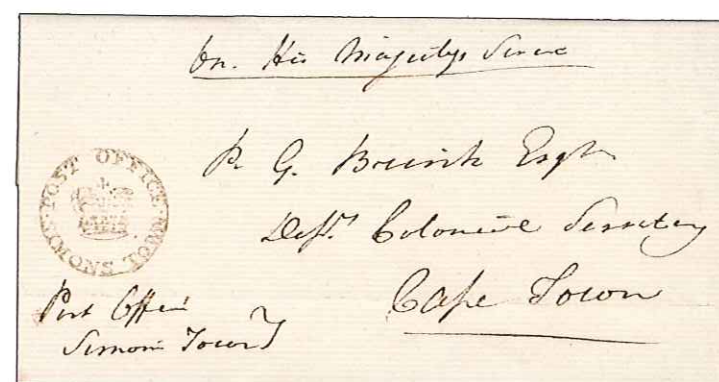 On His Majestys Service
P. G. Brink Esqr
Depy. Colonial Secretary
Cape Town
POST OFFICE SIMONS TOWN
Post Office
Simons Town